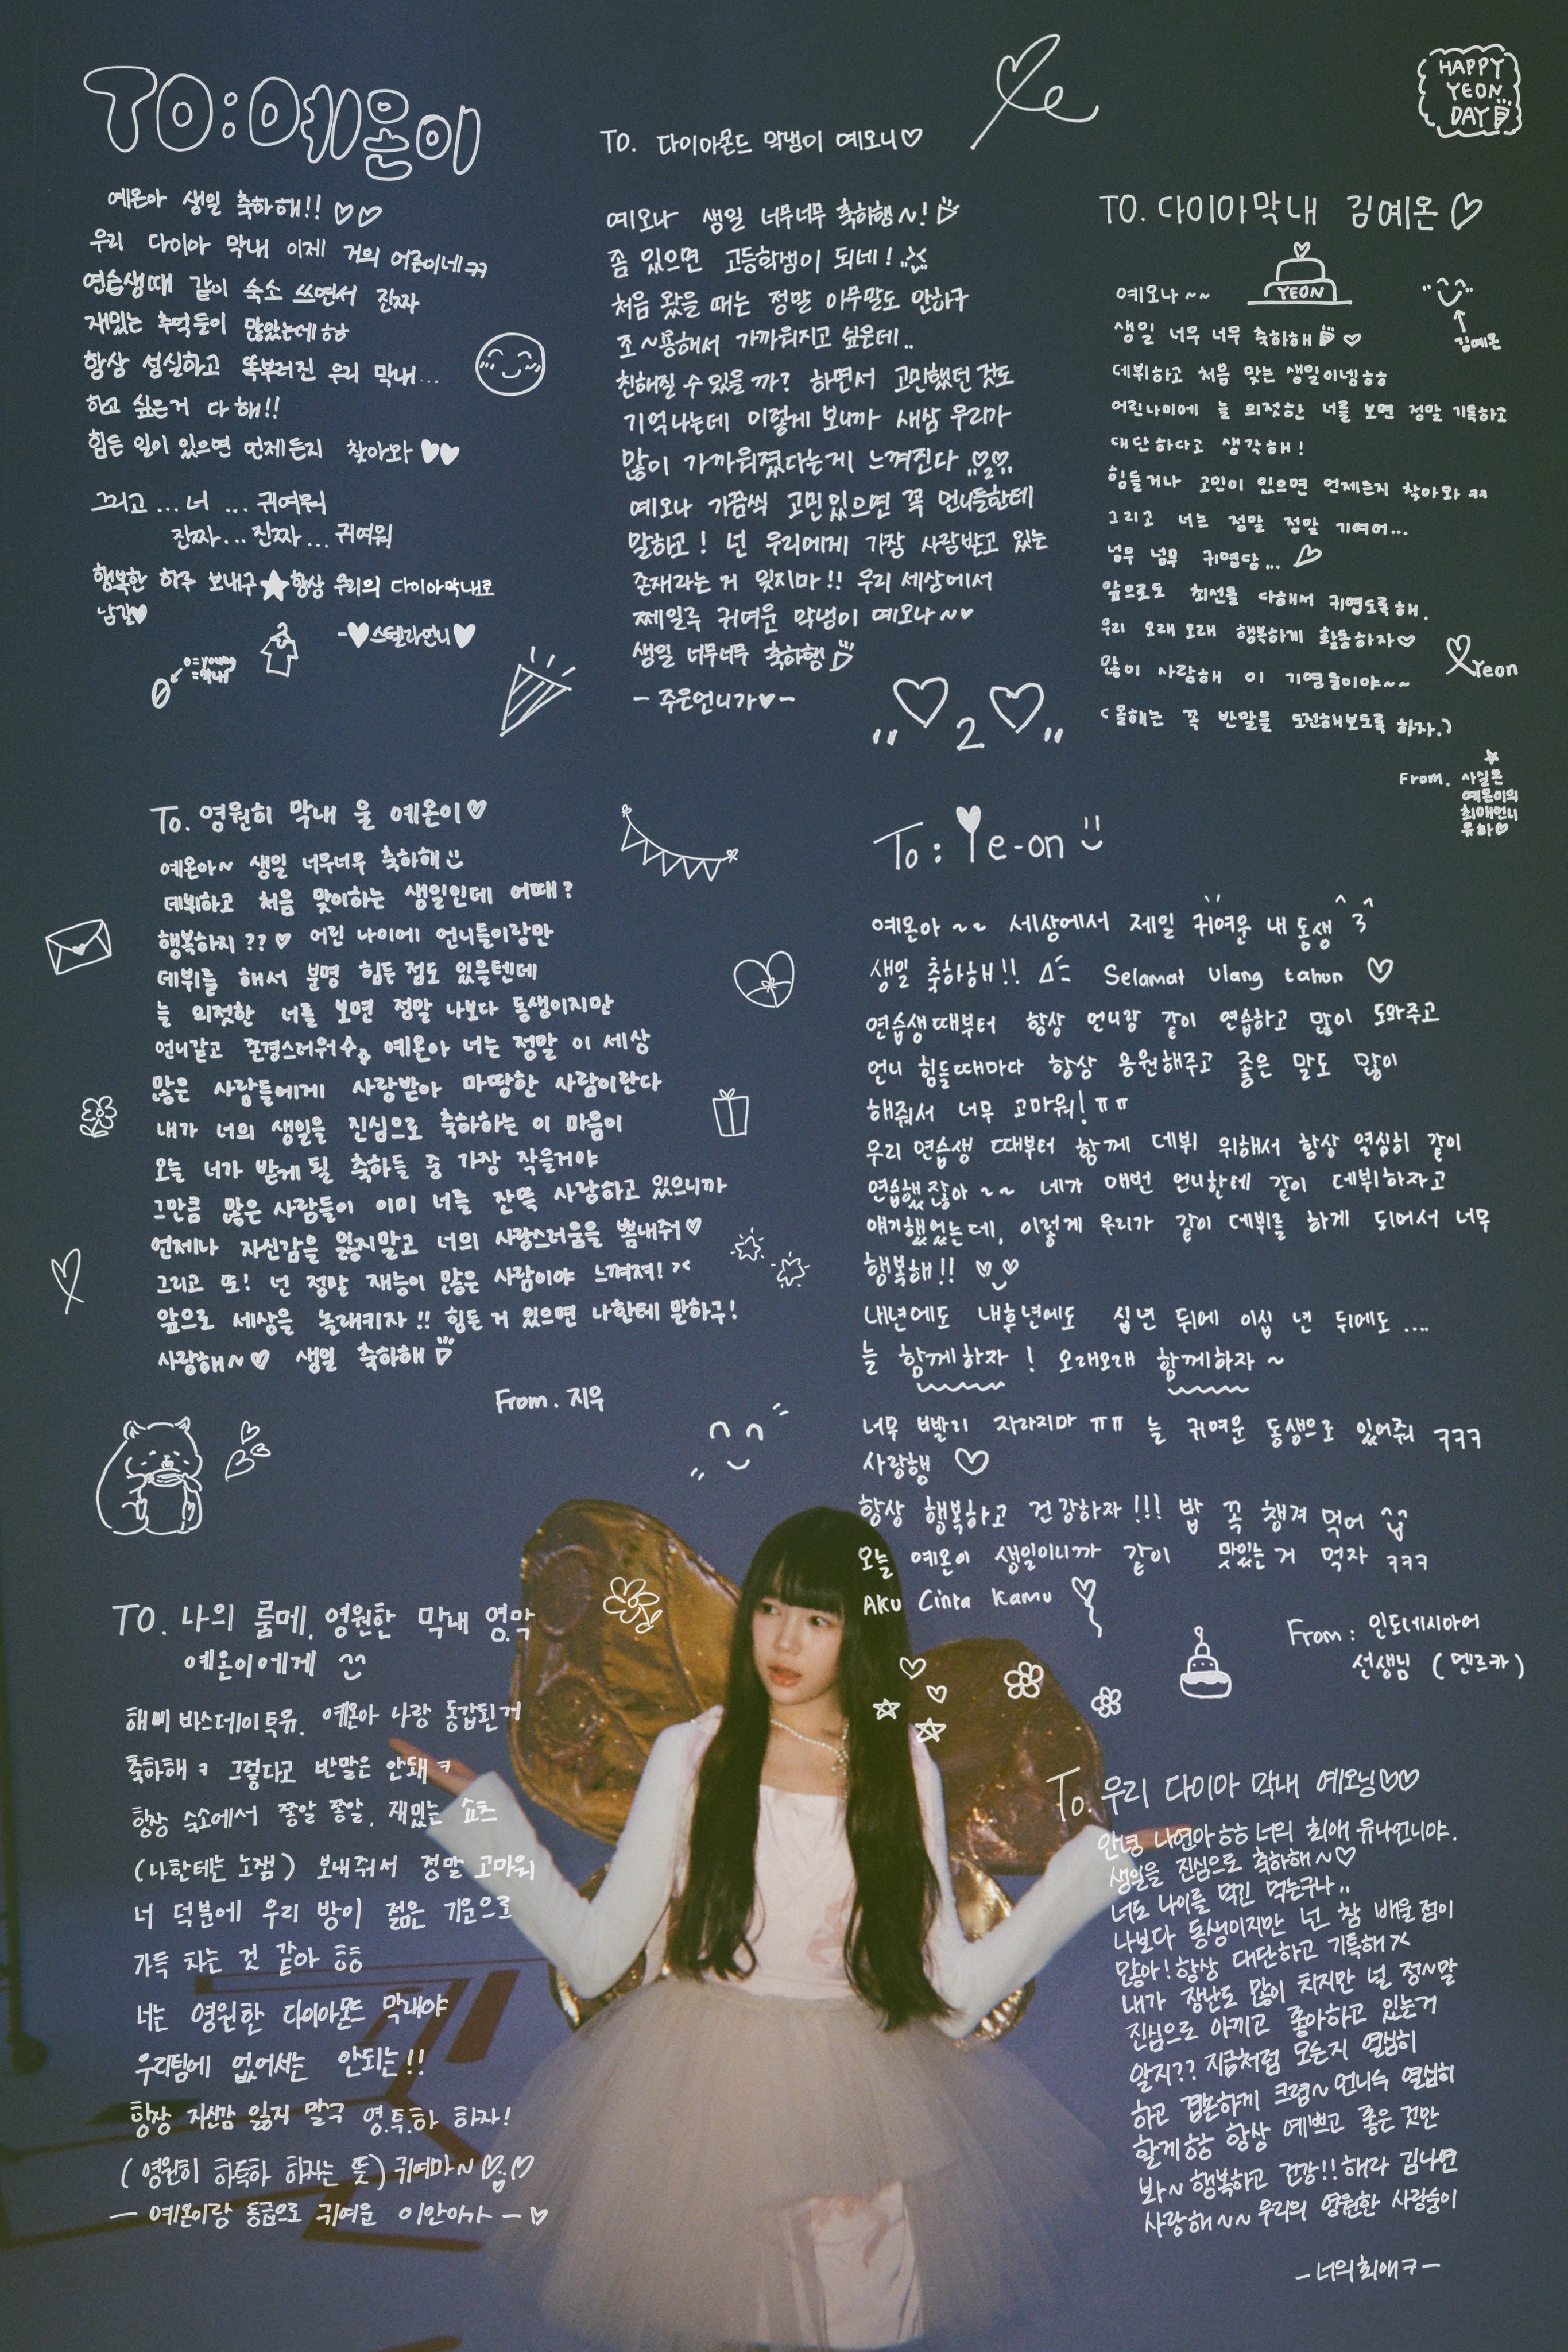 TO:예온이
예온아 생일 축하해!! ♡♡
우리 다이아 막내 이제 거의 어른이네ㅋㅋ
연습생때 같이 숙소 쓰면서 진짜
재밌는 추억들이 많았는데ㅎㅎ
항상 성실하고 똑부러진 우리 막내...
하고 싶은거 다 해!!
힘든 일이 있으면 언제든지 찾아와 ♥♥
그리고 ... 너 ... 귀여워
진짜... 진짜... 귀여워
행복한 하루 보내구★항상 우리의 다이아막내로
남길♥
-♥스텔라언니♥
0=young
=막내
TO. 다이아몬드 막냉이 예오니♡
예오나 생일 너무너무 축하행~!
좀 있으면 고등학생이 되네!
처음 왔을 때는 정말 아무말도 안하구
조~용해서 가까워지고 싶은데..
친해질 수 있을까? 하면서 고민했던 것도
기억나는데 이렇게 보니까 새삼 우리가
많이 가까워졌다는게 느껴진다
예오나 가끔씩 고민있으면 꼭 언니들한테
말하고! 넌 우리에게 가장 사랑받고 있는
존재라는 거 잊지마!! 우리 세상에서
쩨일루 귀여운 막냉이 예오나~♥
생일 너무너무 축하행
- 주은언니가♥-
2
HAPPY
YEON
DAY
TO. 다이아막내 김예온♡
YEON
김예온
예오나~~
생일 너무 너무 축하해 ♡
데뷔하고 처음 맞는 생일이넹ㅎㅎ
어린나이에 늘 의젓한 너를 보면 정말 기특하고
대단하다고 생각해!
힘들거나 고민이 있으면 언제든지 찾아와 ㅋㅋ
그리고 너는 정말 정말 기여어...
넘무 넘무 귀엽당... ♡
앞으로도 최선을 다해서 귀엽도록해.
우리 오래오래 행복하게 활동하자♡
많이 사랑해 이 기염둥이야~~
Yeon
(올해는 꼭 반말을 도전해보도록 하자.)
From. 사실은
예온이의
최애언니
유하♡
To. 영원히 막내 울 예온이♡
예온아~ 생일 너무너무 축하해
데뷔하고 처음 맞이하는 생일인데 어때?
행복하지?? ♡ 어린 나이에 언니들이랑만
데뷔를 해서 분명 힘든 점도 있을텐데
늘 의젓한 너를 보면 정말 나보다 동생이지만
언니같고 존경스러워 예온아 너는 정말 이 세상
많은 사람들에게 사랑받아 마땅한 사람이란다
내가 너의 생일을 진심으로 축하하는 이 마음이
오늘 너가 받게 될 축하들 중 가장 작을거야
그만큼 많은 사람들이 이미 너를 잔뜩 사랑하고 있으니까
언제나 자신감을 잃지말고 너의 사랑스러움을 뽐내줘♡
그리고 또! 넌 정말 재능이 많은 사람이야 느껴져! ><
앞으로 세상을 놀래키자!! 힘든 거 있으면 나한테 말하구!
사랑해~♡ 생일 축하해
From. 지우
To: Ye-on
예온아 ~~ 세상에서 제일 귀여운 내 동생 ^3^
생일 축하해!! Selamat ulang tahun ♡
연습생때부터 항상 언니랑 같이 연습하고 많이 도와주고
언니 힘들때마다 항상 응원해주고 좋은 말도 많이
해줘서 너무 고마워! ㅠㅠ
우리 연습생 때부터 함께 데뷔 위해서 항상 열심히 같이
연습했잖아 ~~ 네가 매번 언니한테 같이 데뷔하자고
얘기했었는데, 이렇게 우리가 같이 데뷔를 하게 되어서 너무
행복해!!
내년에도 내후년에도 십년 뒤에 이십 년 뒤에도 ....
늘 함께하자 ! 오래오래 함께하자 ~
너무 빨리 자라지마 ㅠㅠ 늘 귀여운 동생으로 있어줘 ㅋㅋㅋ
사랑행 ♡
항상 행복하고 건강하자!!! 밥 꼭 챙겨 먹어
오늘 예온이 생일이니까 같이 맛있는 거 먹자 ㅋㅋㅋ
Aku Cinta Kamu
From : 인도네시아어
선생님 (멘르카)
TO. 나의 룸메, 영원한 막내 영.막
예온이에게
해삐 바스데이 투유. 예온아 나랑 동갑된거
축하해ㅋ 그렇다고 반말은 안돼ㅋ
항상 숙소에서 쫑알 쫑알, 재밌는 쇼츠
(나한테는 노잼) 보내줘서 정말 고마워
너 덕분에 우리 방이 젊은 기운으로
가득 차는 것 같아 ㅎㅎ
너는 영원한 다이아몬드 막내야
우리팀에 없어서는 안되는!!
항상 자신감 잃지 말구 영.특.하 하자!
(영원히 하자는 뜻) 귀여마~
- 예온이랑 동급으로 귀여운 이안이가 -♡
To. 우리 다이아 막내 예오닝♡♡
안녕 나연아ㅎㅎ 너의 최애 유나언니야.
생일을 진심으로 축하해~♡
너도 나이를 먹긴 먹는구나..
나보다 동생이지만 넌 참 배울점이
많아! 항상 대단하고 기특해ㅈ
내가 장난도 많이 치지만 널 정~말
진심으로 아끼고 좋아하고 있는거
알지?? 지금처럼 모든지 열심히
하고 겸손하게 크렴~ 언니두 열심히
할게ㅎㅎ 항상 예쁘고 좋은 것만
봐~ 행복하고 건강!! 해라 김나연
사랑해~~ 우리의 영원한 사랑둥이
- 너의 최애ㅋ -